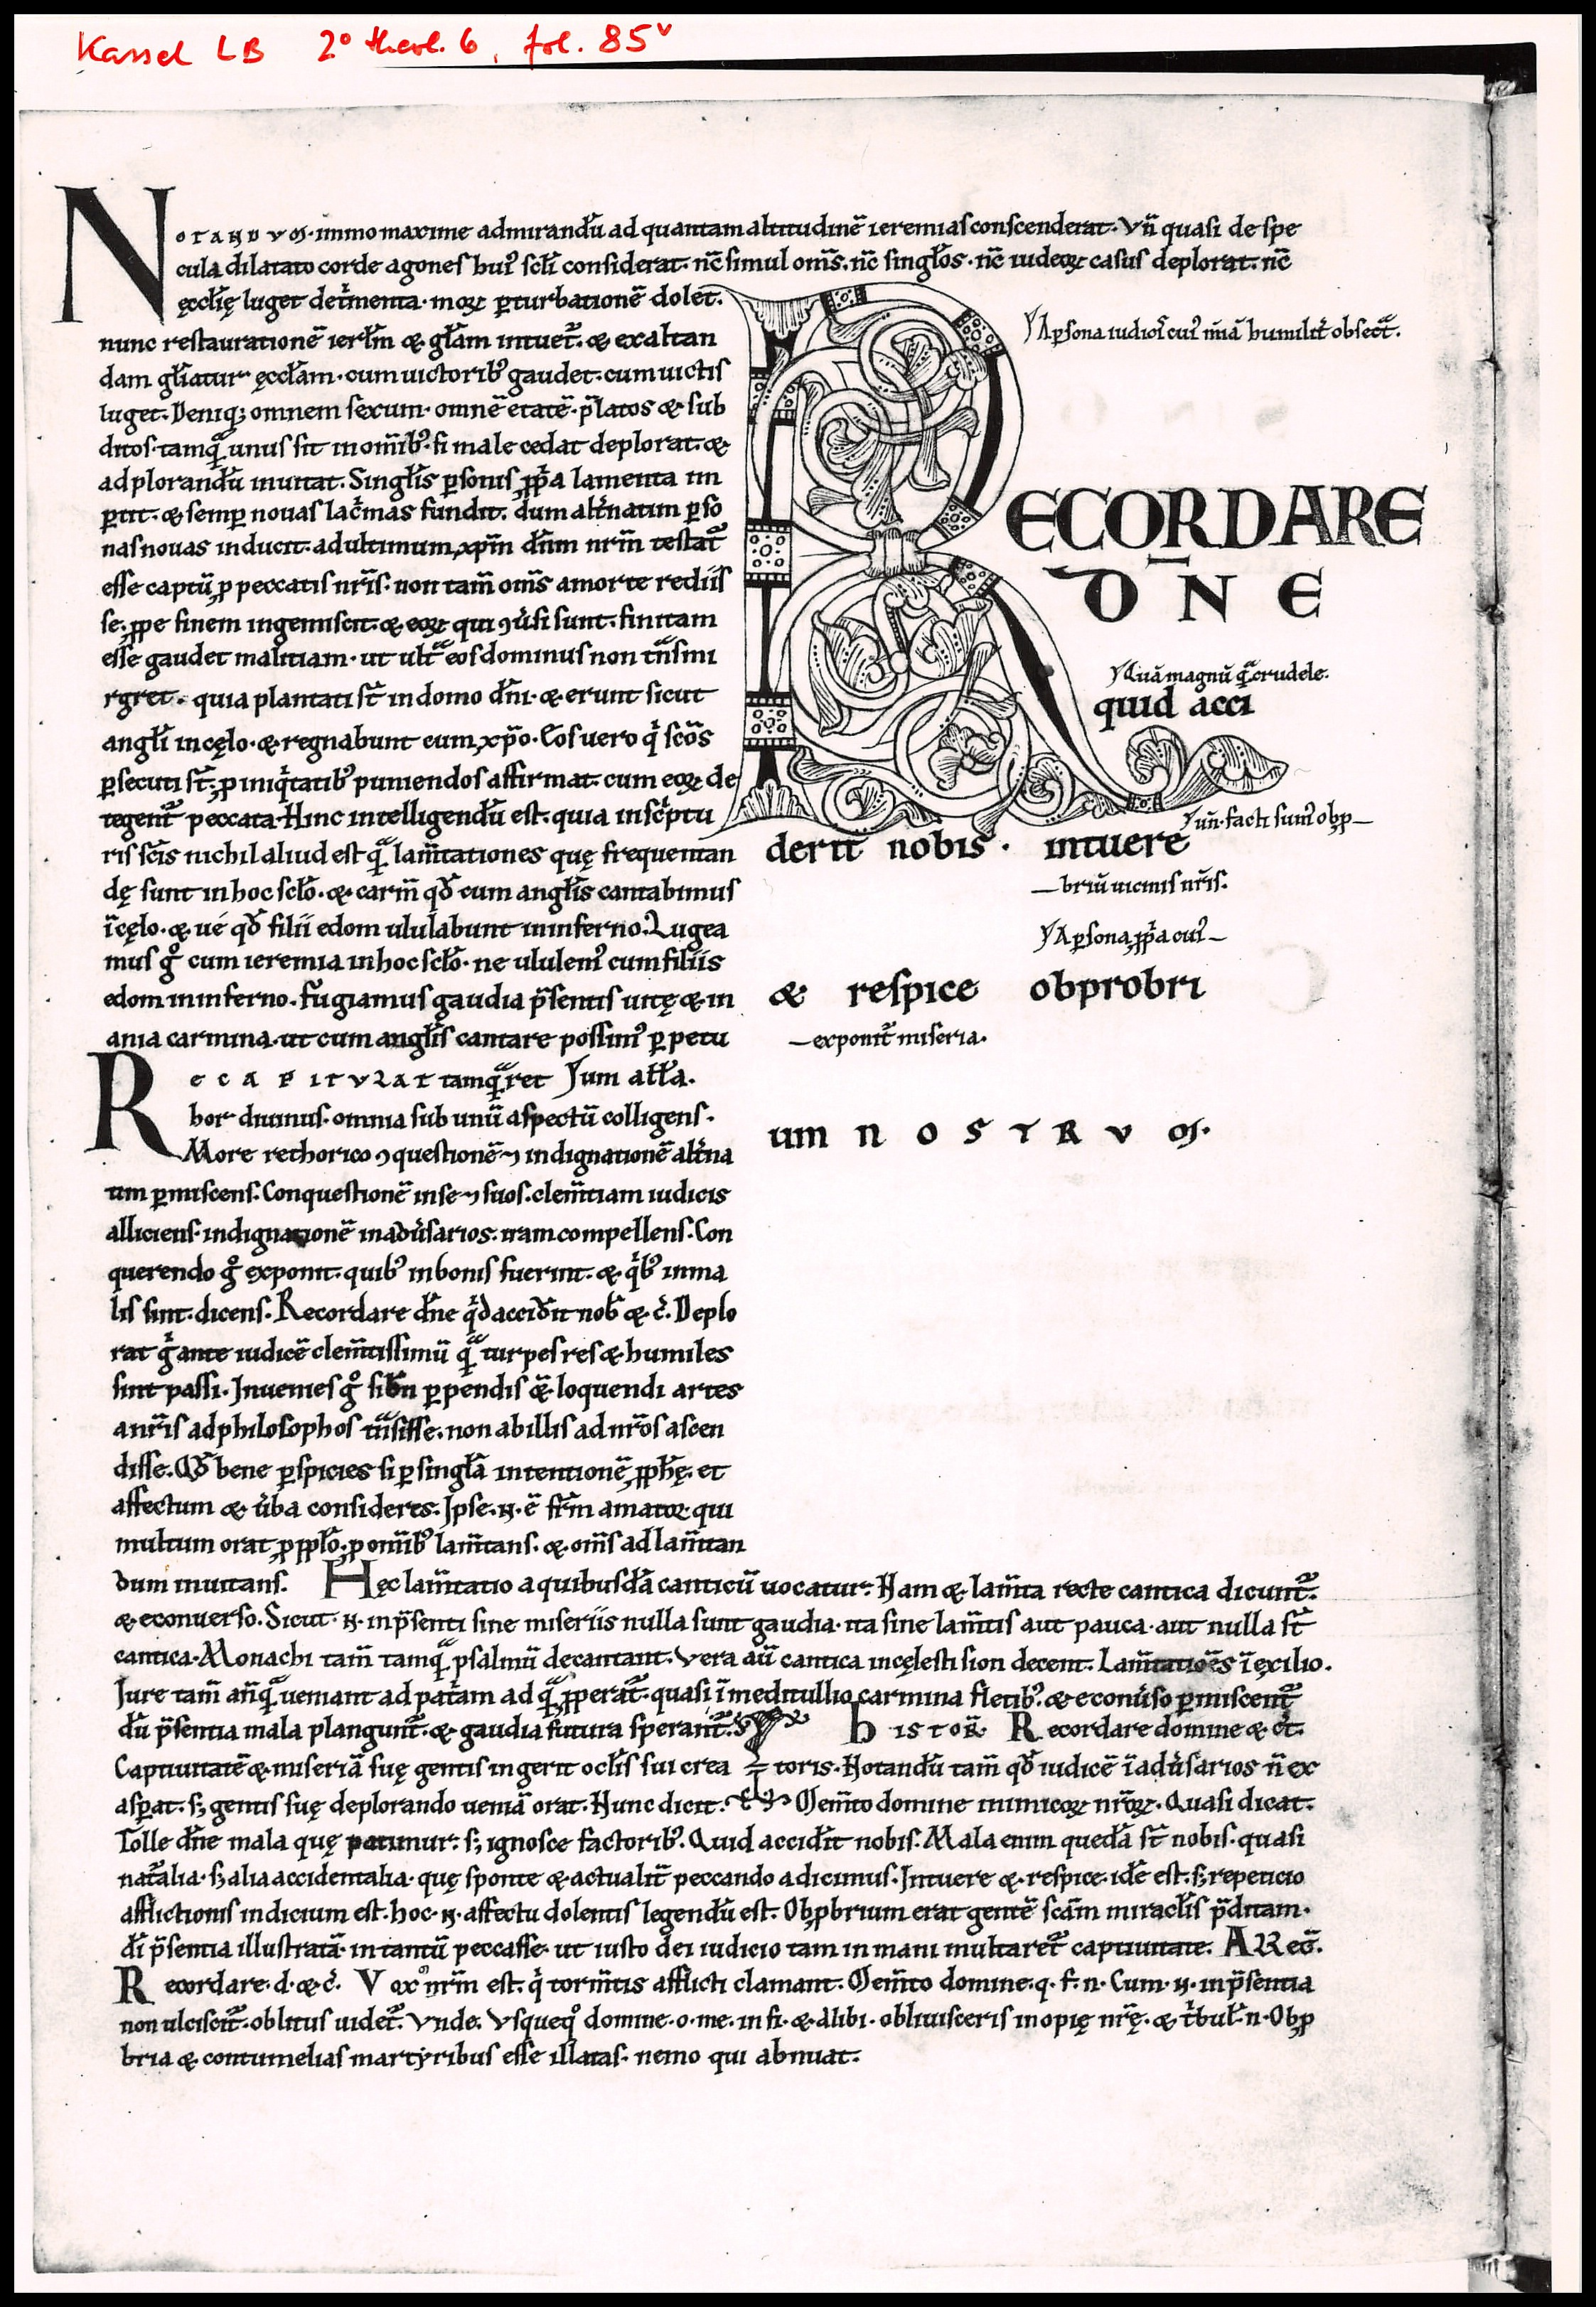 Kassel LB 2° theol. 6, fol. 85v
NOTANDUM·immo maxime admirandū ad quantam altitudinē ieremias conscenderat. Vn̄ quasi de spe
cula dilatato corde agones hui᾽ scl̄i considerat. nc̄ simul om̄s. nc̄ singl̄os. nc̄ iudeoꝝ casus deplorat. nc̄
ęccl̄ię luget det᷑menta. moꝝ ꝑturbationē dolet.
nunc restaurationē ierl̄m & gl̄am intuet᷑. & exaltan
dam gl̄iatur ęccl̄am. cum uictorib᾽ gaudet. cum uictis
luget. Deniq; omnem sexum. omnē etatē. p̄latos & sub
ditos. tamqͣ unus sit in om̄ib᾽. si male cedat deplorat. &
ad plorandū inuitat. Singl̄is ꝑsonis ꝓpͥa lamenta im
ꝑtit. & semꝑ nouas lac᷑mas fundit. dum alt᷑natim ꝑso
nas nouas inducit. ad ultimum, xp̄m dn̄m nr̄m testat᷑
esse captū, ꝓ peccatis nr̄is. non tam̄ om̄s a morte rediis
se, ꝓpe finem ingemiscit. & eoꝝ qui ꝯu᷑si sunt. finitam
esse gaudet malitiam. ut ultͣ eos dominus non tn̄smi
rgret. quia plantati st̄ in domo dn̄i. & erunt sicut
angl̄i in cęlo. & regnabunt cum, xp̄o. Eos uero qͥ sc̄os
ꝑsecuti st̄, ꝓ iniqͥtatib᾽ puniendos affirmat. cum eoꝝ de
tegent᷑ peccata. Hinc intelligendū est. quia in scͥptu
ris sc̄is nichil aliud est qͣ lam̄tationes quę frequentan
dę sunt in hoc scl̄o. & carm̄ qđ cum angl̄is cantabimus
ī cęlo. & ué qđ filii edom ululabunt in inferno. Lugea
mus gͦ cum ieremia in hoc scl̄o. ne ululem᾽ cum filiis
edom in inferno. fugiamus gaudia p̄sentis uitę & in
ania carmina. ut cum angl̄is cantare possim᾽ ꝑpetu
RECAPITULAT tamqͣ ret Jum all̄a.
bor diuinus. omnia sub unū aspectū colligens.
More rethorico ꝯquestionē ⁊ indignationē alt᷑na
tim ꝑmiscens. Conquestionē in se ⁊ suos. clem̄tiam iudicis
alliciens. indignationē in adu᷑sarios. iram compellens. Con
querendo gͦ exponit. quib᾽ in bonis fuerint. & qͥb᾽ in ma
lis sint. dicens. Recordare dn̄e qͥd acciđit nob̄ & c᷑. Deplo
rat gͥ ante iudicē clem̄tissimū qͣ turpes res & humiles
sint passi. Inuenies gͦ si bn̄ ꝑpendis & loquendi artes
a nr̄is ad philosophos tn̄sisse. non ab illis ad nr̄os ascen
disse. Qđ bene ꝑspicies si ꝑ singl̄a intentionē, ꝓph̄ę. et
affectum & u᷑ba consideres. Ipse. n. ē fr̄m amatoꝝ qui
multum orat, ꝓ ppl̄o, ꝓ om̄ib᾽ lam̄tans. & om̄s ad lam̄tan
dum inuitans. Hęc lam̄tatio a quibusdā canticū uocatur. Nam & lam̄ta recte cantica dicunt᷑.
& econuerso. Sicut. n. in p̄senti sine miseriis nulla sunt gaudia. ita sine lam̄tis aut pauca. aut nulla st̄
cantica. Monachi tam̄ tamqͣ psalmū decantant. Vera aū cantica in cęlesti sion decent. Lam̄tatiōes ī exilio.
Jure tam̄ an̄qͣ ueniant ad pat᷑am ad qͣ, ꝓperat᷑. quasi ī meditullio carmina fletib᾽. & econu᷑so ꝑmiscent᷑
dū p̄sentia mala plangunt᷑. & gaudia futura sperant᷑. HISTOR̄ Recordare domine & ct.
Captiuitatē & miseriā suę gentis ingerit ocl̄is sui creatoris. Notandū tam̄ qđ iudicē ī adu᷑sarios n̄ ex
asꝑat. s; gentis suę deplorando ueniā orat. Nunc dicit. Mem̄to domine inimicoꝝ nr̄oꝝ. Quasi dicat.
Tolle dn̄e mala quę patimur. s; ignosce factorib᾽. Quid acciđit nobis. Mala enim quedā st̄ nobis. quasi
nat᷑alia. s; alia accidentalia. quę sponte & actualit᷑ peccando adicimus. Intuere & respice. idē est. s; repeticio
afflictionis indicium est. hoc. n. affectu dolentis legendū est. Obꝓbrium erat gentē scām miracl̄is p̄ditam.
dī p̄sentia illustratā. in tantū peccasse. ut iusto dei iudicio tam inmani multaret᷑ captiuitate. ALLEG̅.
Recordare. d. & c᷑. Vox nr̄m est. qͥ torm̄tis afflicti clamant. Mem̄to domine. q. f. n. Cum. n. in p̄sentia
non ulciscit᷑. oblitus uidet᷑. Vnde. Vsqueqͦ domine. o. me. in fi. & alibi. obliuisceris inopię nr̄ę. & t᷑bul̄. n. Obꝓ
bria & contumelias martyribus esse illatas. nemo qui abnuat.
A ꝑsona iudicis̄ cui᾽ m̄iā humilit᷑ obsect᷑.
RECORDARE
DN̄E
Quā magnū qͣ crudele.
quid acci
un̄. facti sum᾽ obꝓ—
derit nobis. intuere
—briū uicinis nr̄is.
A ꝑsona, ꝓpͥa cui᾽—
& respice obprobri
—exponit᷑ miseria.
um NOSTRUM.